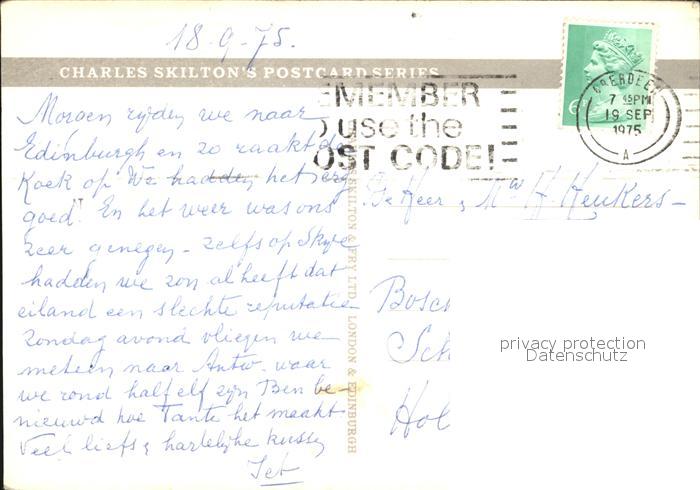 18.9.75.
CHARLES SKILTON'S POSTCARD SERIES
EMEMBER
o use the
OST CODE!
ABERDEEN
7 45PM
19 SEP
1975
A
Morgen rijden we naar
Edinburgh en zo raakt de
Koek op We hadden het erg
goed! En het weer was ons
zeer genegen - zelfs op Skye
hadden we zon al heeft dat
eiland een slechte reputatie
Zondag avond vliegen we
meteen naar Antw. waar
we rond half elf zijn Ben be-
nieuwd hoe Tante het maakt
Veel liefs & hartelijke kussen
Jet
SKILTON & FRY LTD / LONDON & EDINBURGH
De Heer & Mw H. Heukers -
Bosc
Sch
Hol
privacy protection
Datenschutz